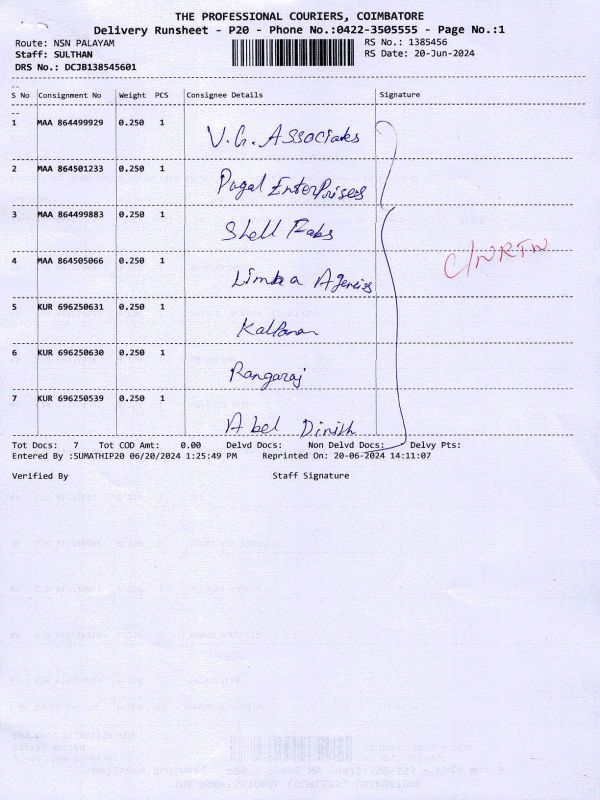 THE PROFESSIONAL COURIERS, COIMBATORE
Delivery Runsheet - P20 - Phone No.:0422-3505555 - Page No.:1
Route: NSN PALAYAM RS No.: 1385456
Staff: SULTHAN RS Date: 20-Jun-2024
DRS No.: DCJB138545601
S No Consignment No Weight PCS Consignee Details Signature
1 MAA 864499929 0.250 1 V.G. Associates
2 MAA 864501233 0.250 1 Pagal Enterprises
3 MAA 864499883 0.250 1 Shell Fabs
4 MAA 864505066 0.250 1 Limra Agencies
C/NRTN
5 KUR 696250631 0.250 1 Kalpana
6 KUR 696250630 0.250 1 Rangaraj
7 KUR 696250539 0.250 1 Abel Dinith
Tot Docs: 7 Tot COD Amt: 0.00 Delvd Docs: Non Delvd Docs: Delvy Pts:
Entered By :SUMATHIP20 06/20/2024 1:25:49 PM Reprinted On: 20-06-2024 14:11:07
Verified By Staff Signature